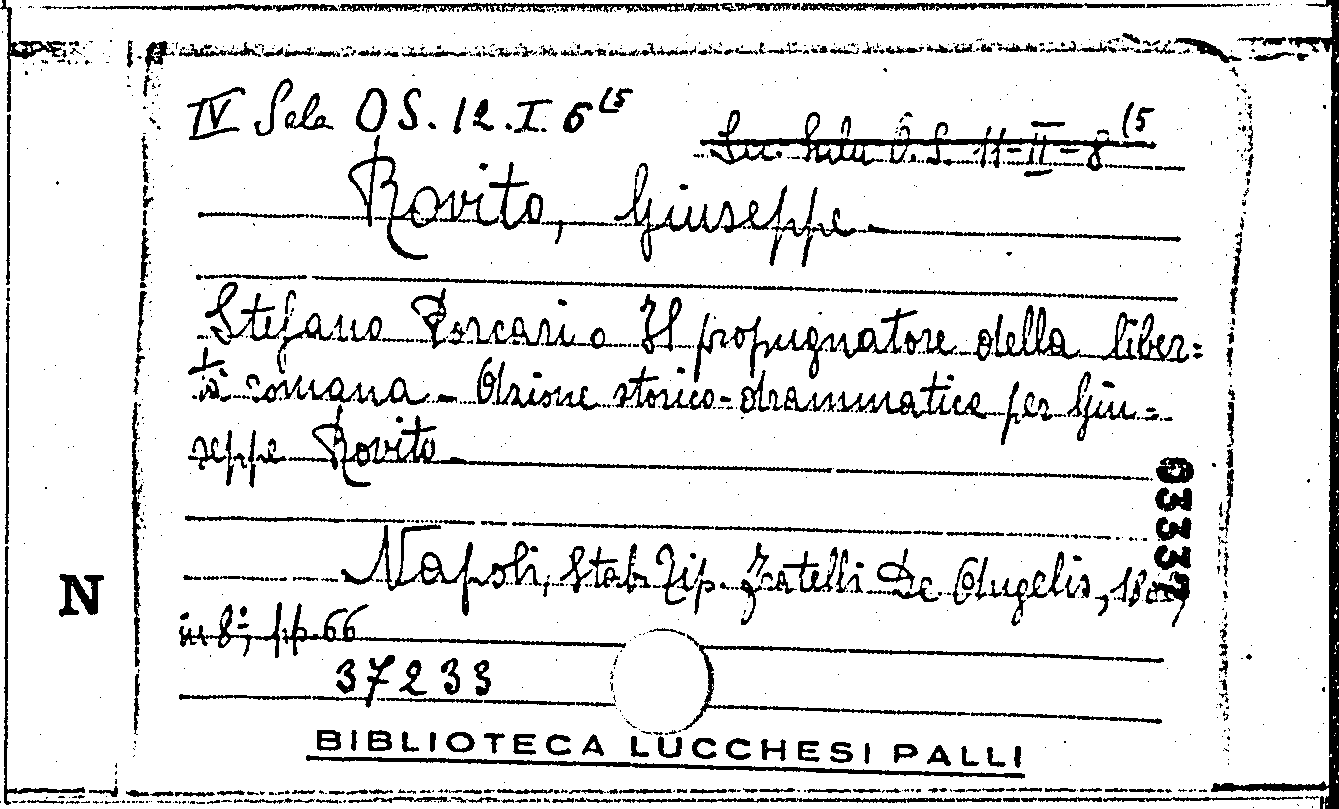 IV Sala O S. 12. I. 6 (5
Luc. Sala O. S. 11-II-8 (5
Rovito, Giuseppe
Stefano Porcari o Il propugnatore della liber=
tà romana - Azione storico-drammatica per Giu=
seppe Rovito
03337
Napoli, Stab. Tip. Fratelli De Angelis,
N
in 8°, pp. 66
37233
BIBLIOTECA LUCCHESI PALLI